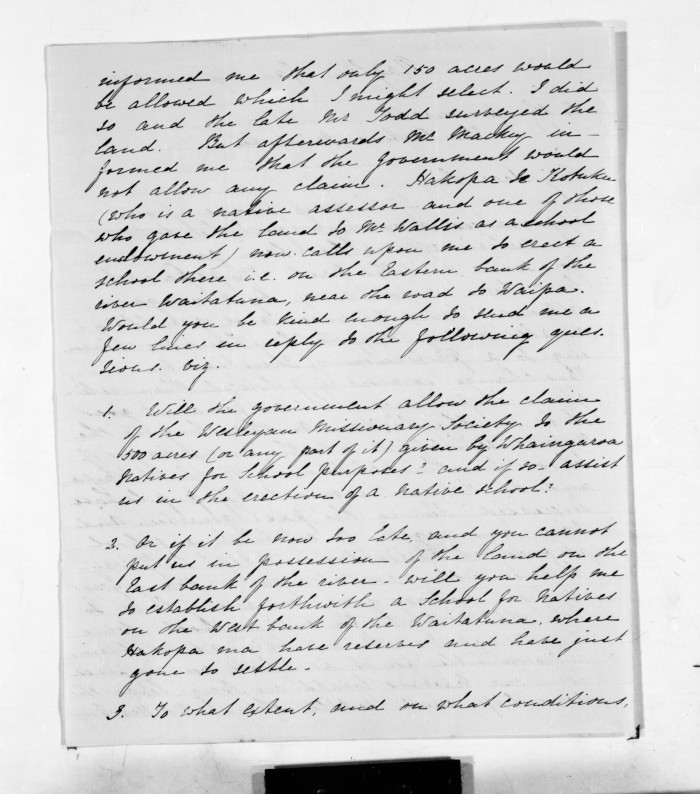 informed me that only 150 acres would
be allowed which I might select. I did
so and the late Mr Todd surveyed the
land. But afterwards Mr Mackay in-
formed me that the Government would
not allow any claim. Hakopa te Kotuku
(who is a native assessor and one of those
who gave the land to Mr Wallis as a school
endowment) now calls upon me to erect a
school there i.e. on the Eastern bank of the
river Waitatuna, near the road to Waipa.
Would you be kind enough to send me a
few lines in reply to the following ques-
tions. viz.
1. Will the government allow the claim
of the Wesleyan Missionary Society to the
500 acres (or any part of it) given by Whaingaroa
Natives for School purposes? and if so assist
us in the erection of a native school?
2. Or if it be now too late, and you cannot
put us in possession of the land on the
East bank of the river - will you help me
to establish forthwith a School for Natives
on the West bank of the Waitatuna, where
Hakopa ma have reserves and have just
gone to settle.
3. To what extent, and on what conditions,